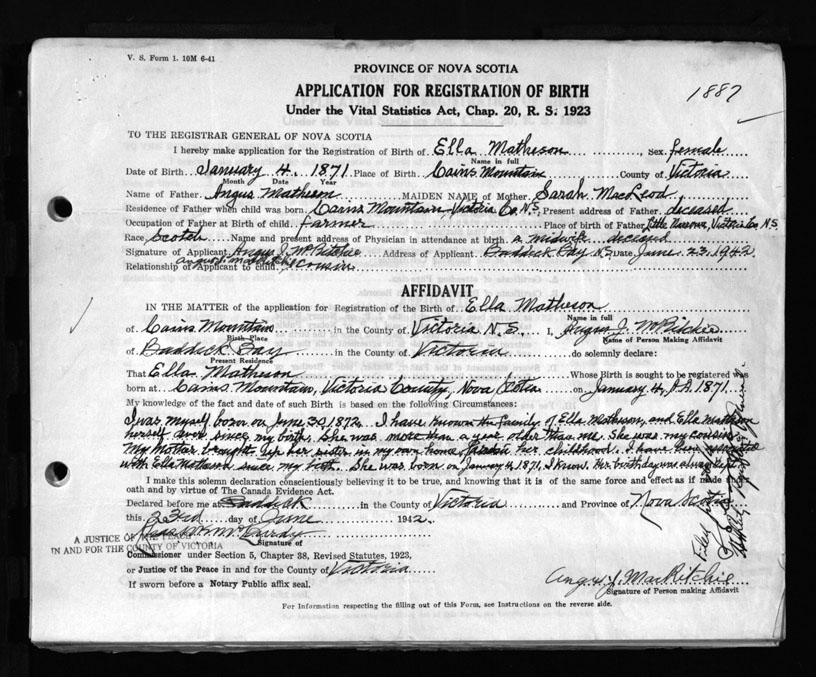 V. S. Form 1. 10M 6-41
PROVINCE OF NOVA SCOTIA
APPLICATION FOR REGISTRATION OF BIRTH
1887
Under the Vital Statistics Act, Chap. 20, R. S. 1923
TO THE REGISTRAR GENERAL OF NOVA SCOTIA
I hereby make application for the Registration of Birth of Ella Matheson, Sex female
Name in full
Date of Birth January 4, 1871. Place of Birth Cains Mountain County of Victoria
Month Date Year
Name of Father Angus Matheson MAIDEN NAME of Mother Sarah MacLeod
Residence of Father when child was born Cains Mountain Victoria Co. N.S. Present address of Father deceased
Occupation of Father at Birth of child farmer Place of birth of Father Little Narrows, Victoria Co N.S.
Race Scotch Name and present address of Physician in attendance at birth a midwife deceased
Signature of Applicant Angus J. McRitchie Address of Applicant Baddeck Bay N.S. Date June 23, 1942
Relationship of Applicant to child cousin
AFFIDAVIT
IN THE MATTER of the application for Registration of the Birth of Ella Matheson
Name in full
of Cains Mountain in the County of Victoria N.S. I, Angus J. McRitchie
Birth Place Name of Person Making Affidavit
of Baddeck Bay in the County of Victoria do solemnly declare:
Present Residence
That Ella Matheson Whose Birth is sought to be registered was
born at Cains Mountain, Victoria County, Nova Scotia on January 4, A.D. 1871
My knowledge of the fact and date of such Birth is based on the following Circumstances:
I was myself born on June 30 1872. I have known the family of Ella Matheson, and Ella
herself ever since my birth. She was more than a year older than me. She was my cousin
My mother brought up her sister in my own home her childhood. I have been
with Ella Matheson since my birth. She was born on January 4, 1871, I know. Her birthday was always
I make this solemn declaration conscientiously believing it to be true, and knowing that it is of the same force and effect as if made
oath and by virtue of The Canada Evidence Act.
Declared before me at Baddeck in the County of Victoria and Province of Nova Scotia
this 23rd day of June 1942
A JUSTICE OF THE PEACE
IN AND FOR THE COUNTY OF VICTORIA
Signature of
Commissioner under Section 5, Chapter 38, Revised Statutes, 1923,
or Justice of the Peace in and for the County of Victoria
If sworn before a Notary Public affix seal.
Angus J. MacRitchie
Signature of Person making Affidavit
For Information respecting the filling out of this Form, see Instructions on the reverse side.